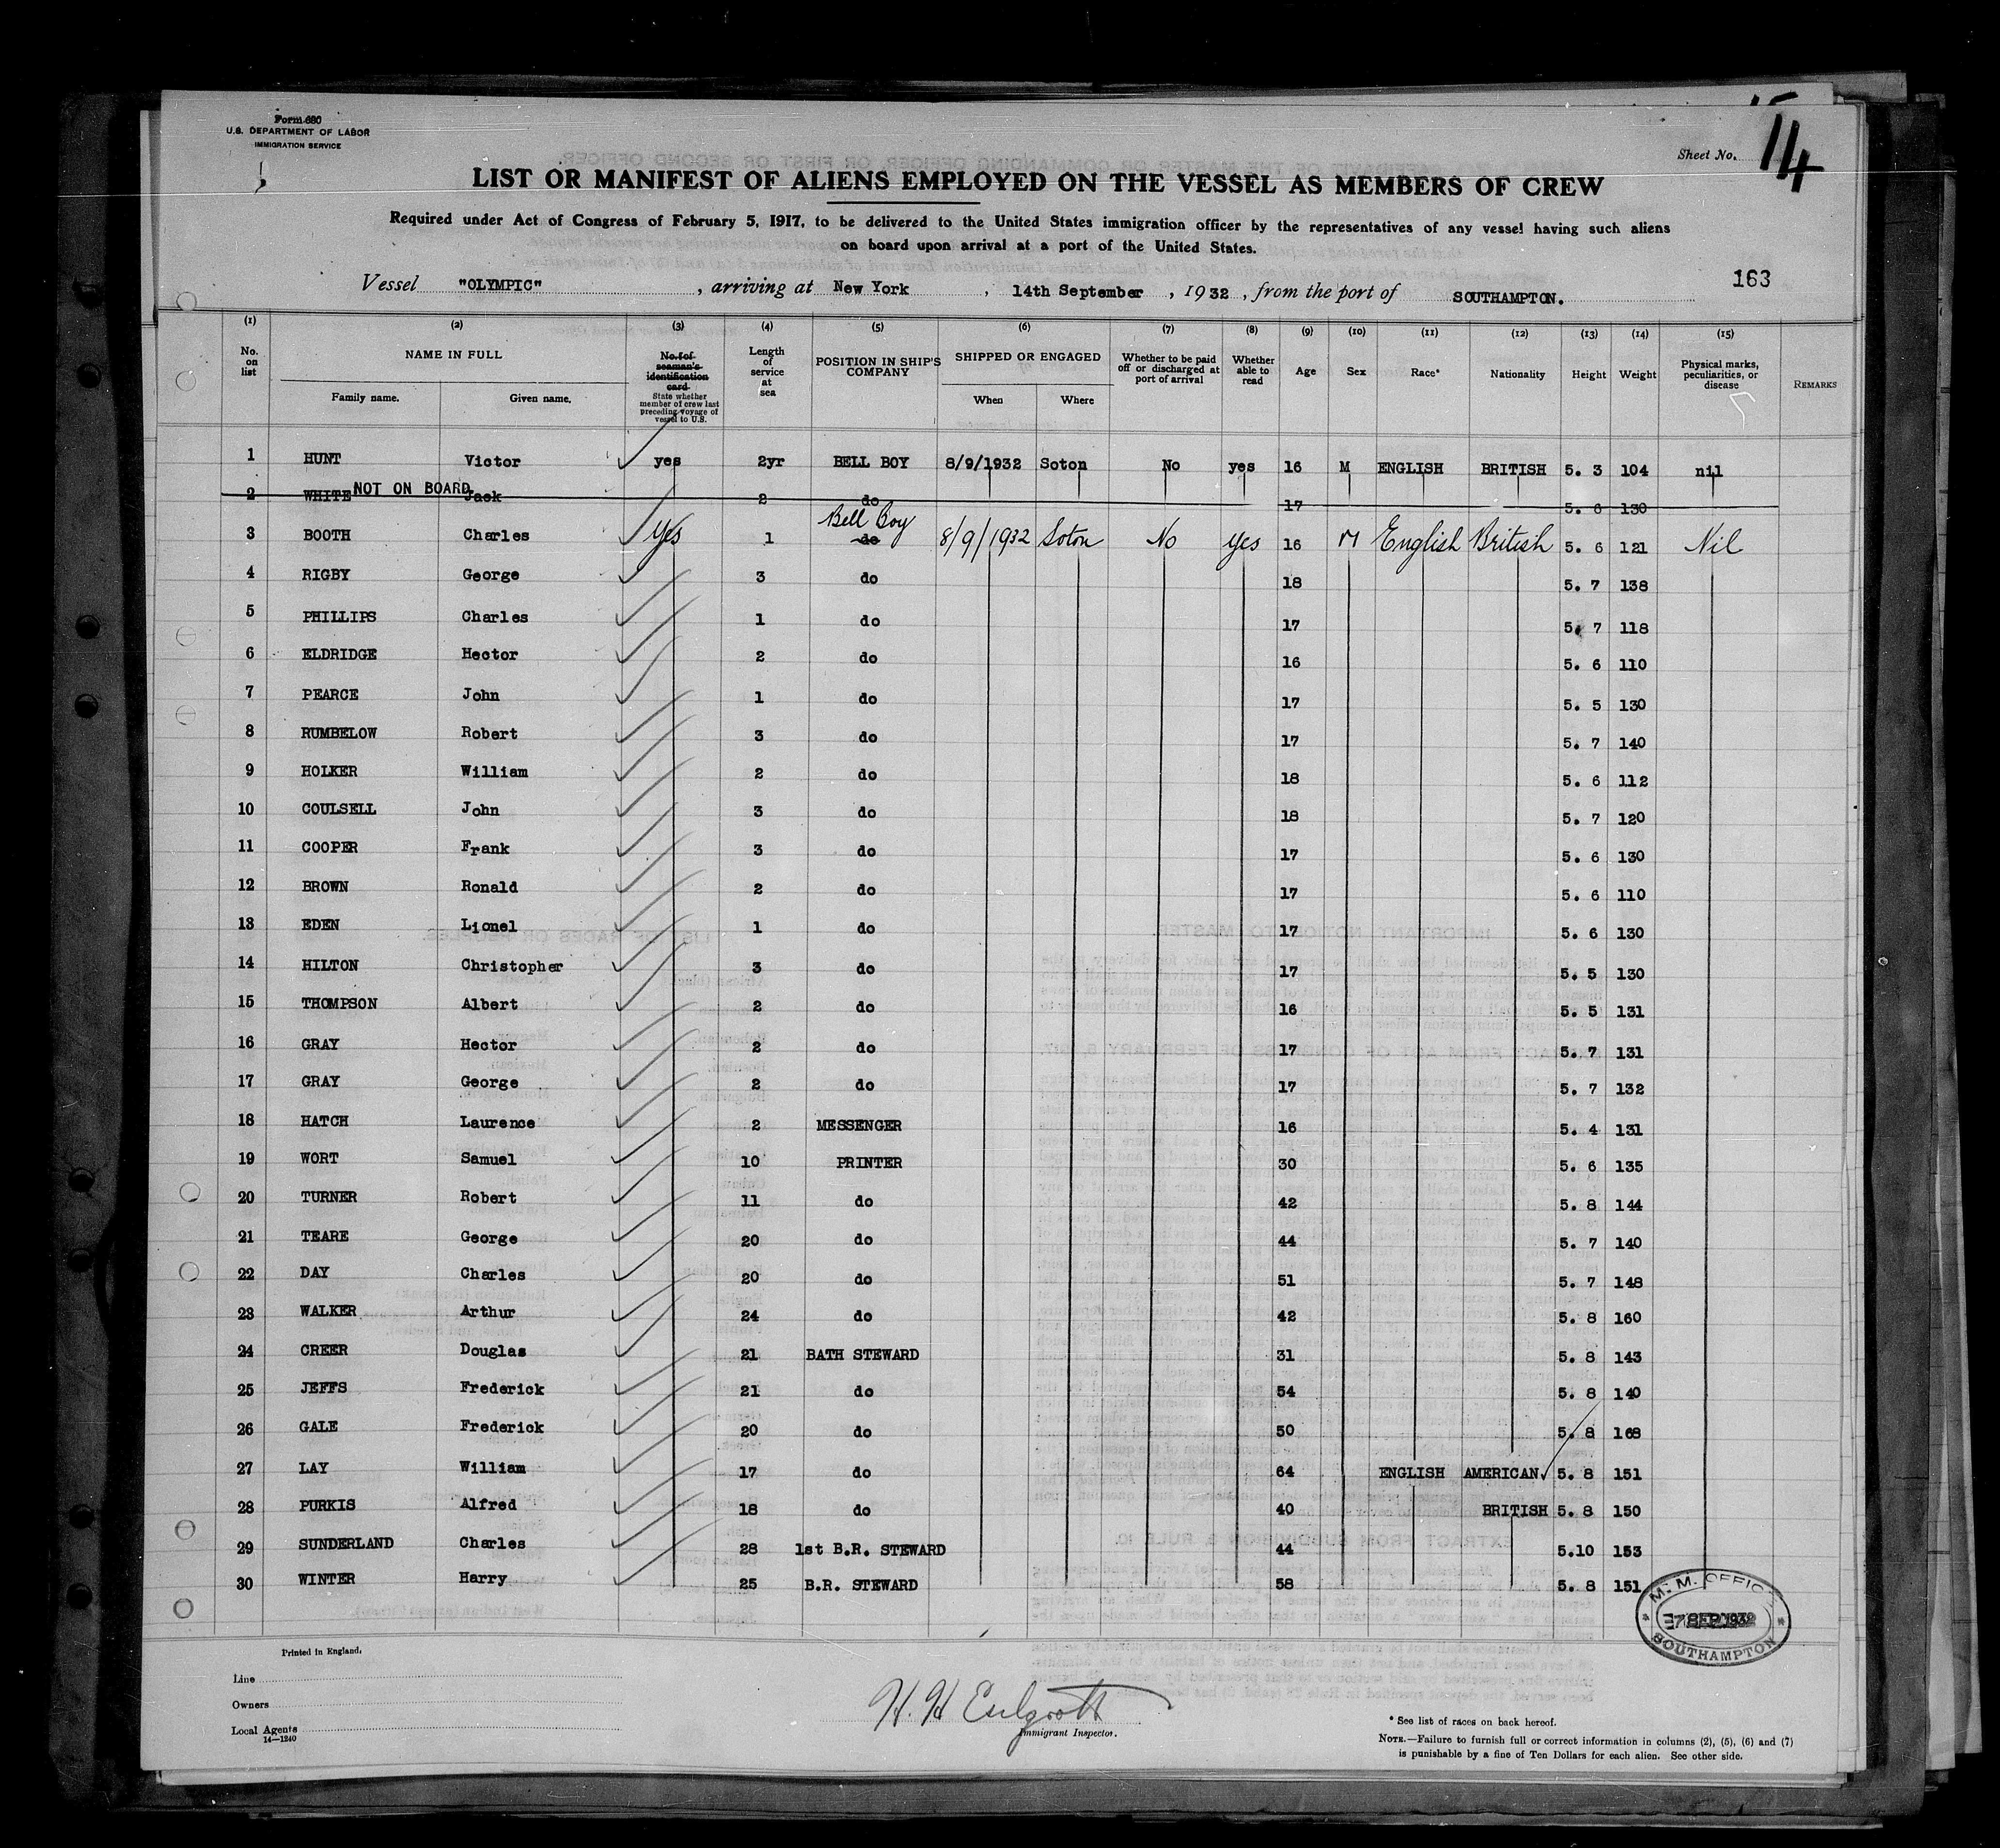 Form 680
U.S. DEPARTMENT OF LABOR
IMMIGRATION SERVICE
Sheet No. 14
LIST OR MANIFEST OF ALIENS EMPLOYED ON THE VESSEL AS MEMBERS OF CREW
Required under Act of Congress of February 5, 1917, to be delivered to the United States immigration officer by the representatives of any vessel having such aliens
on board upon arrival at a port of the United States.
163
Vessel "OLYMPIC", arriving at New York, 14th September, 1932, from the port of SOUTHAMPTON.
(1) (2) (3) (4) (5) (6) (7) (8) (9) (10) (11) (12) (13) (14) (15)
No. on list
NAME IN FULL
Family name. Given name.
No. of seaman's identification card
State whether member of crew last preceding voyage of vessel to U.S.
Length of service at sea
POSITION IN SHIP'S COMPANY
SHIPPED OR ENGAGED
When Where
Whether to be paid off or discharged at port of arrival
Whether able to read
Age
Sex
Race*
Nationality
Height
Weight
Physical marks, peculiarities, or disease
REMARKS
1 HUNT Victor yes 2yr BELL BOY 8/9/1932 Soton No yes 16 M ENGLISH BRITISH 5. 3 104 nil
2 WHITE NOT ON BOARD Jack 2 do 17 5. 6 130
3 BOOTH Charles Yes 1 do Bell Boy 8/9/1932 Soton No Yes 16 M English British 5. 6 121 Nil
4 RIGBY George 3 do 18 5. 7 138
5 PHILLIPS Charles 1 do 17 5. 7 118
6 ELDRIDGE Hector 2 do 16 5. 6 110
7 PEARCE John 1 do 17 5. 5 130
8 RUMBELOW Robert 3 do 17 5. 7 140
9 HOLKER William 2 do 18 5. 6 112
10 COULSELL John 3 do 18 5. 7 120
11 COOPER Frank 3 do 17 5. 6 130
12 BROWN Ronald 2 do 17 5. 6 110
13 EDEN Lionel 1 do 17 5. 6 130
14 HILTON Christopher 3 do 17 5. 5 130
15 THOMPSON Albert 2 do 16 5. 5 131
16 GRAY Hector 2 do 17 5. 7 131
17 GRAY George 2 do 17 5. 7 132
18 HATCH Laurence 2 MESSENGER 16 5. 4 131
19 WORT Samuel 10 PRINTER 30 5. 6 135
20 TURNER Robert 11 do 42 5. 8 144
21 TEARE George 20 do 44 5. 7 140
22 DAY Charles 20 do 51 5. 7 148
23 WALKER Arthur 24 do 42 5. 8 160
24 CREER Douglas 21 BATH STEWARD 31 5. 8 143
25 JEFFS Frederick 21 do 54 5. 8 140
26 GALE Frederick 20 do 50 5. 8 168
27 LAY William 17 do 64 ENGLISH AMERICAN 5. 8 151
28 PURKIS Alfred 18 do 40 BRITISH 5. 8 150
29 SUNDERLAND Charles 28 1st B.R. STEWARD 44 5.10 153
30 WINTER Harry 25 B.R. STEWARD 58 5. 8 151
M. M. OFFICE
7 SEP 1932
SOUTHAMPTON
Printed in England.
Line
Owners
Local Agents
14—1240
Immigrant Inspector.
* See list of races on back hereof.
NOTE.—Failure to furnish full or correct information in columns (2), (5), (6) and (7)
is punishable by a fine of Ten Dollars for each alien. See other side.